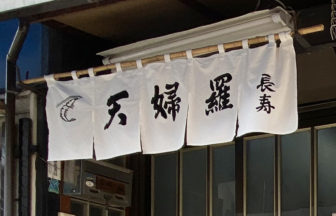 天婦羅
長寿